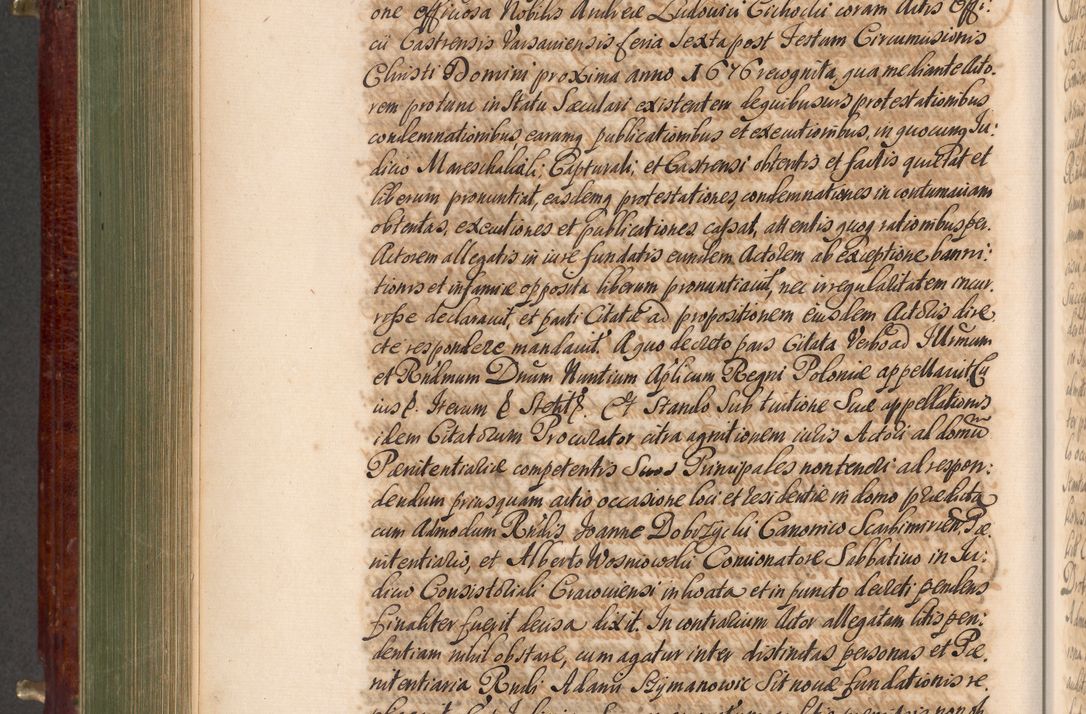 one officiosa Nobilis Andreæ Ludovici Cichocki coram Actis Offi:
cii Castrensis Varsaviensis feria Sexta post Festum Circumcisionis
Christi Domini proxima anno 1676 recognita, qua mediante Acto.
rem protunc in Statu Sæculari existentem de quibusvis protestationibus
condemnationibus earumq publicationibus et executionibus, in quocunq Iu:
dicio Mareschalcali, Capturali, et Castrensi obtentis et factis quietat et
liberum pronuntiat, easdemq protestationes, condemnationes in contumaciam
obtentas, executiones et publicationes cassat, attentis quoq rationibus per.
Actorem allegatis in iure fundatis eundem Actorem ab exceptione banni:
tionis et infamiæ opposita liberum pronuntiavit, nec irregularitatem incur.
rysse declaravit, et parti Citatæ ad propositionem eiusdem Actoris dire
cte respondere mandavit. A quo decreto pars Citata Verbo ad Illrimum
et Rndmum Dnum Nuntium Aplicum Regni Poloniæ appellavit Cu
ius &. Iterum & Stetit &. Et Stando Sub tuitione Suæ appellationis
idem Citatorum Procurator citra agnitionem iuris Actori ad domũ
Pænitentiariæ competentis Suos Principales non teneri ad respon:
dendum priusquam actio occasione loci et residentiæ in domo prædicta
cum Admodum Rndis Joanne Dobrzycki Canonico Scarbimirien. Pæ
nitentiario, et Alberto Wosniowski Concionatore Sabbatino in Iu:
dicio Consistoriali Cracoviensi inchoata et in puncto decreti pendens
finaliter fuerit decisa dixit. In contrarium Actor allegatam litispen:
dentiam nihil obstare, cum agatur inter distinctas personas et Pæ.
nitentiaria Rndi Adami Szÿmanowic Sit novæ fundationis re